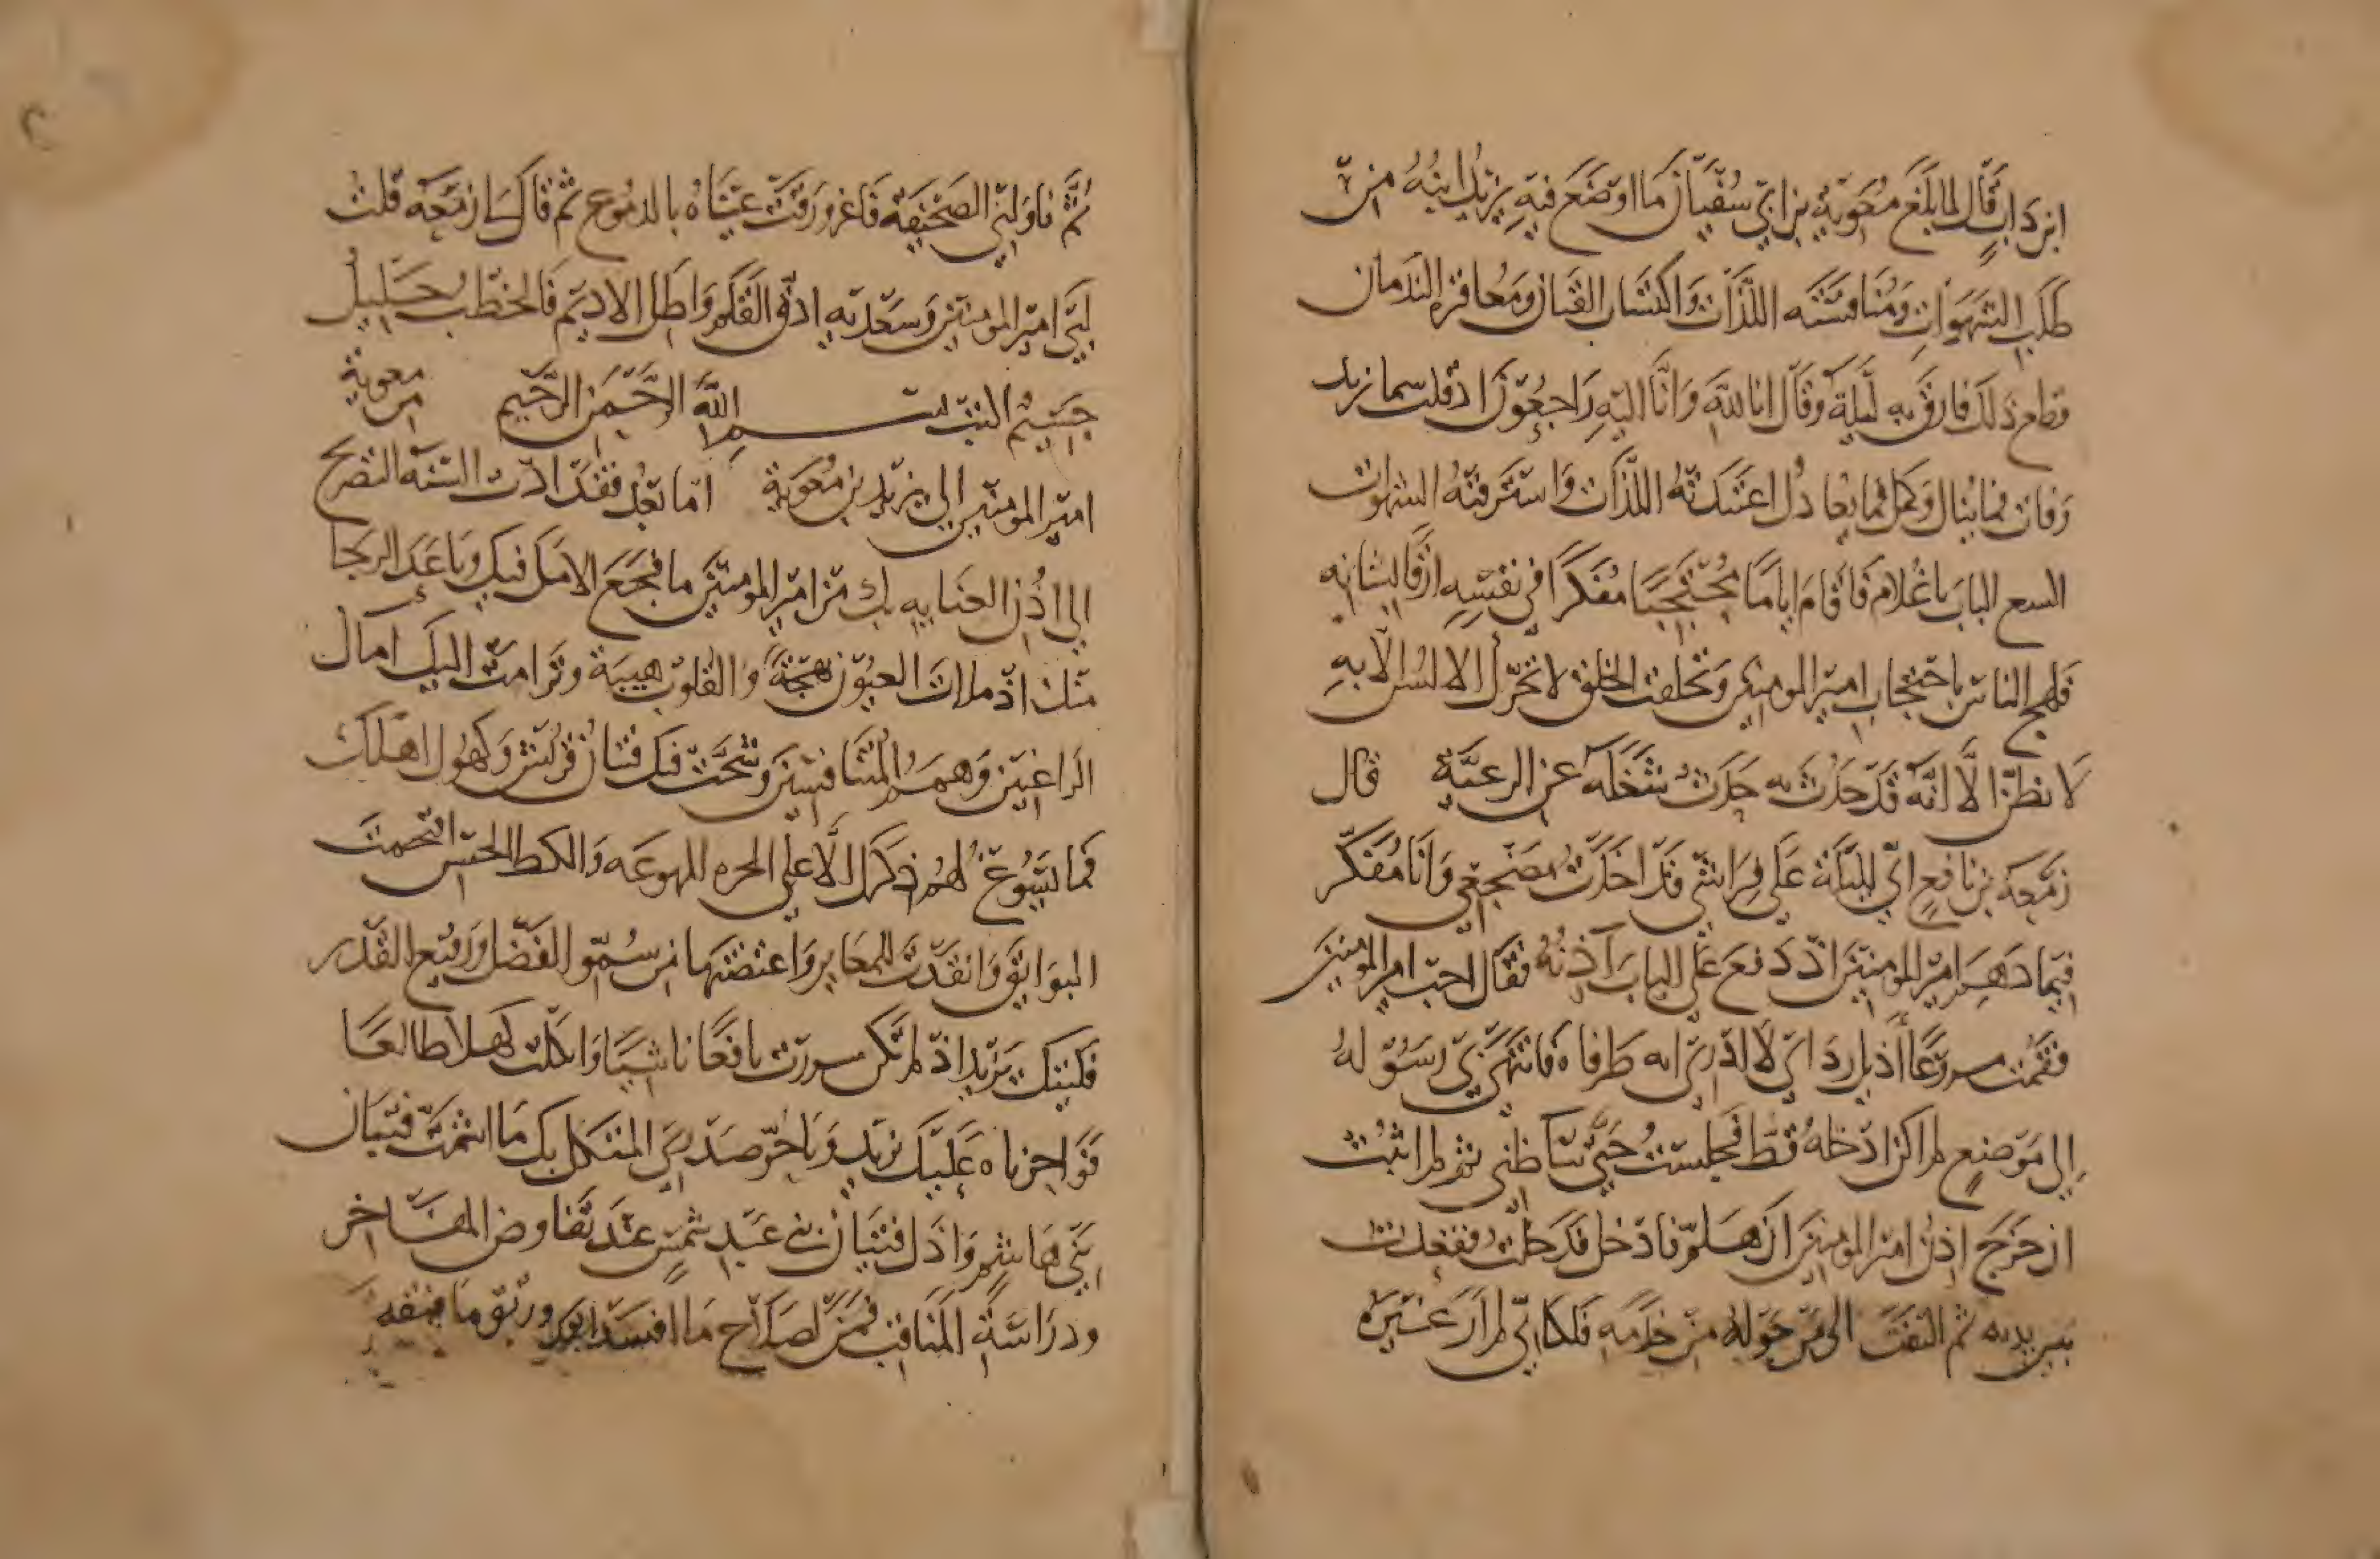 ابن داب قال لما بلغ معوية بن ابي سفيان ما اوضع فيه يزيد ابنه من
طلب الشهوات ومنافسته اللذات واكتساب القيان ومعاقرة الندمان
ذلك فارق به ليلة وقال انا لله وانا اليه راجعون اذ قلت
وفات فما ينال وكمل فما يعادل اللذات واسترقته الشهوات
الباب يا غلام فاقام اياما محتجبا مفكرا في نفسه
فلهج الناس باحتجاب امير المومنين الخلق لا تحرك الالسن الا به
لا نظن الا انه قد حدث به حدث شغله عن الرعية قال
زمعة بن نافع اني لليلة على فراشي قد اخذت مضجعي وانا مفكر
فيما دهم امير المومنين اذ دفع علي الباب آذنه فقال اجب امير المومنين
فقمت أذيل رداي لا ادري اه طرفاه فانتهى بي رسوله
الى موضع لم اكن ادخله قط فجلست حتى ثم لم اثبت
ان خرج اذن امير المومنين ان هلم فادخل فدخلت
بين يديه ثم التفت الى من حوله من خدمه فلكاني لم ار غيره
ثم ناولني الصحيفة فاغرورقت عيناه بالدموع ثم قال يا زمعة قلت
لبى امير المومنين وسعديه ادق القلم واطل الاديم فالخطب جليل
جسيم اكتب بسم الله الرحمن الرحيم من معوية
امير المومنين الى يزيد بن معوية اما بعد فقد ادت السنة التصريح
الى اذن العناية بك من امير المومنين ما فجع الامل فيك وباعد الرجا
منك اذ ملات العيون بهجة والقلوب هيبة وترامت اليك امال
الراغبين وهمم المتنافسين فيك فتيان قريش وكهول اهلك
فما يسوغ لهم ذكرك الا على
البوايق وانقدت للمعاير واعتضتها من سمو الفضل ورفيع القدر
فليتك يزيد اذ لم تكن سررت يافعا ناشيا واثكلت كهلا
فواحزناه عليك يزيد ويا حر صدر المثكل بك ما اشمت فتيان
بني هاشم واذل فتيان بني عبد شمس عند تفاوض المفاخر
ودراسة المناقب فمن لصلاح ما افسد ابوك ورتق ما